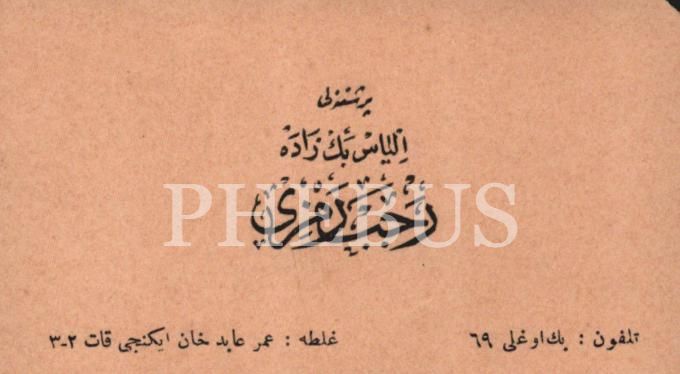 پرشتنه لی
الیاس بك زاده
رجب رمزی
PHEBUS
تلفون : بك اوغلی ٦٩ غلطه : عمر عابد خان ایكنجی قات ٢-٣